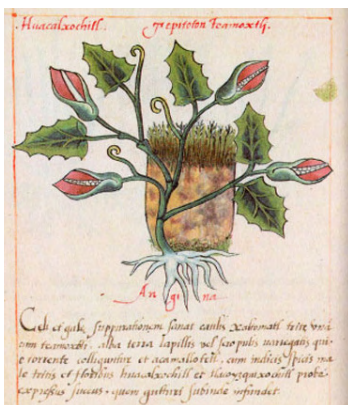 Huacalxochitl. tepitoton Teamoxtli.
Angina
Coli et gulę suppurationem sanat caulis xaltomatl trita unà
cum teamoxtli, alba terra lapillis vel scrupulis variegatis quę
è torrente colliguntur et acamallotetl, cum indicis spicis ma
lè tritis et floribus huacalxochitl et
expressus succus, quem gutturi subinde infundet.